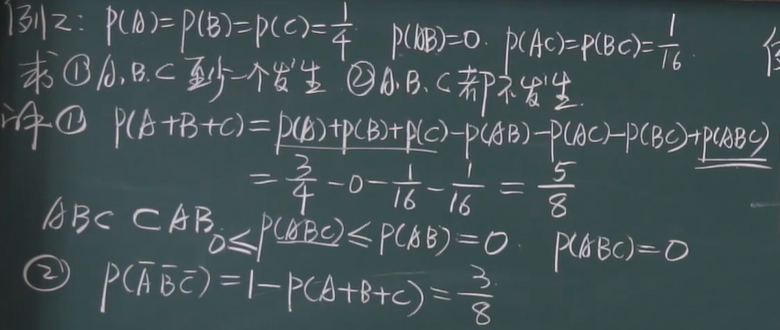 例2: P(A)=P(B)=P(C)=1/4 P(AB)=0. P(AC)=P(BC)=1/16.
求 ① A.B.C 至少一个发生 ② A.B.C 都不发生.
解 ① P(A+B+C)=P(A)+P(B)+P(C)-P(AB)-P(AC)-P(BC)+P(ABC)
=3/4-0-1/16-1/16=5/8
ABC⊂AB. 0≤P(ABC)≤P(AB)=0. P(ABC)=0
② P(A̅ B̅ C̅)=1-P(A+B+C)=3/8